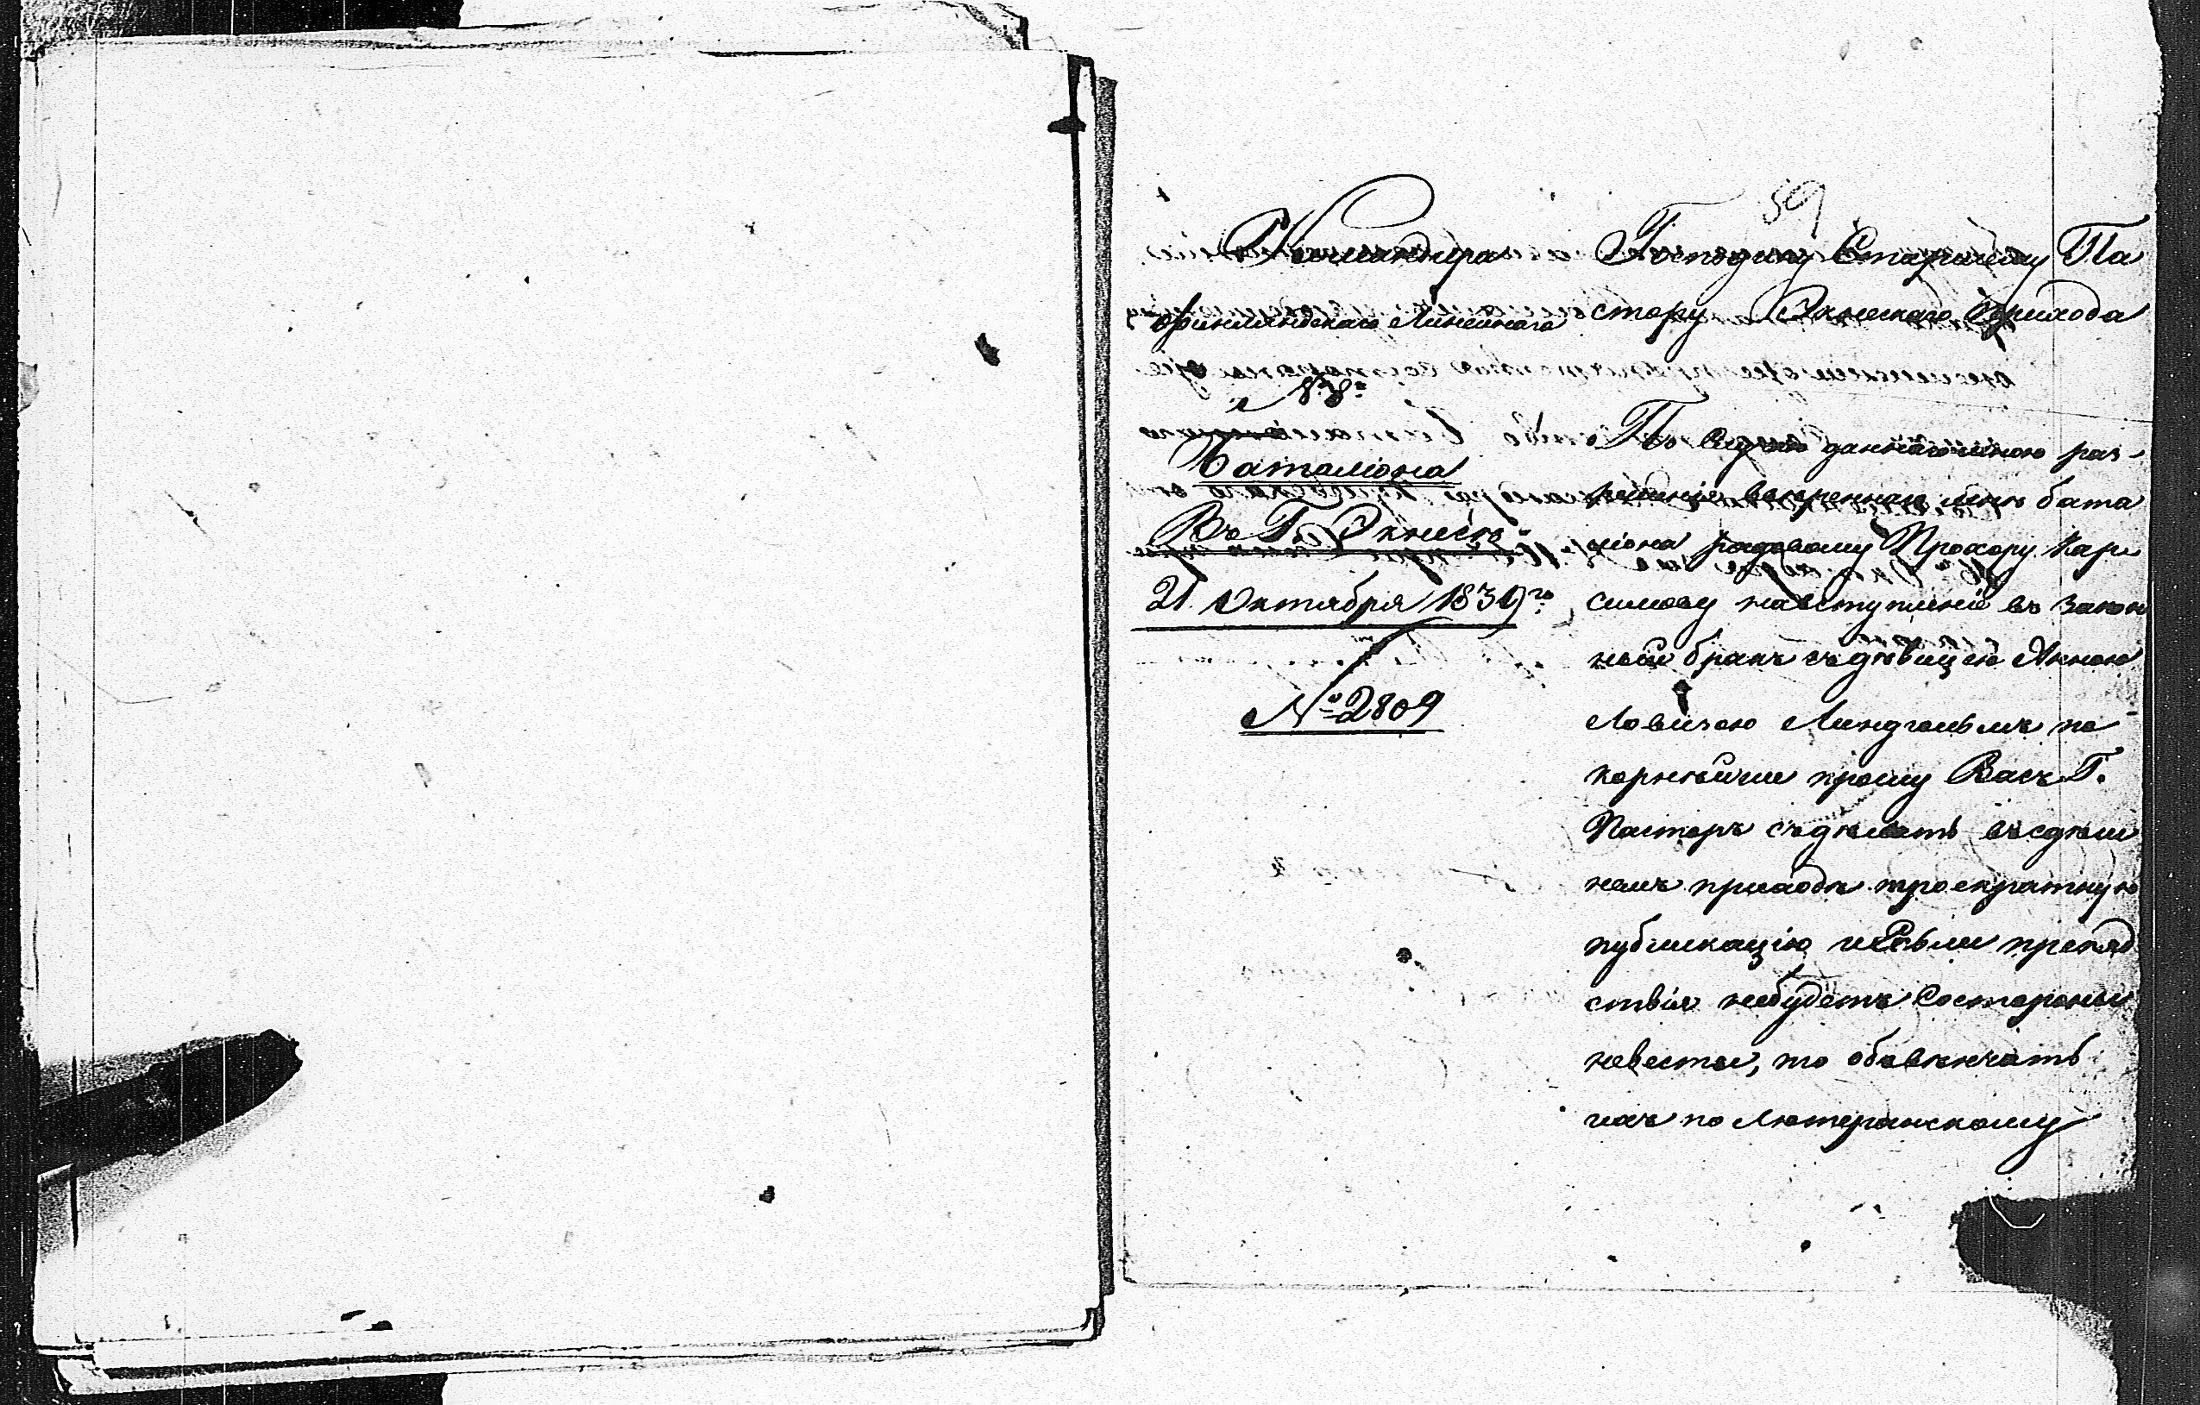 59
Командира
Финляндскаго Линейнаго
№ 8го
Баталіона
Въ Г. Экнесѣ
21 Октября 1839го
№ 2809
Господину Старшему Па
стору Экнескаго Прихода
По случаю даннаго мною раз-
решенія ввереннаго мнѣ бата
ліона рядовому Прохору Кар
симову навступленіе въ закон
ный бракъ съ дѣвицею Анною
Ловизою Линдгольмъ по
корнѣйше прошу Васъ Г.
Пасторъ сдѣлать въ сдѣш
немъ приходѣ троекратную
публикацію и Ежьли препяд
ствія небудетъ Состороны
невесты, то обвѣнчать
ихъ по Лютеранскому